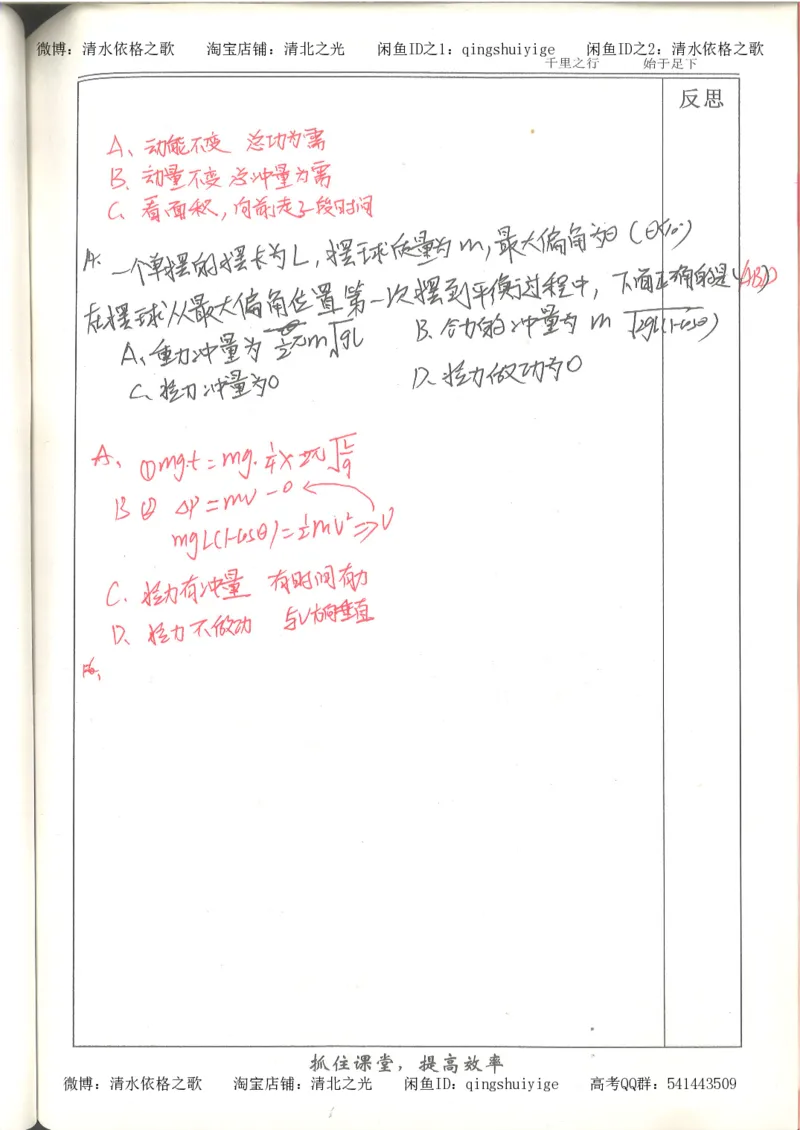 微博：清水依格之歌 淘宝店铺：清北之光 闲鱼ID之1：qingshuiyige 闲鱼ID之2：清水依格之歌
千里之行 始于足下
反思
A、动能不变 总功为零
B、动量不变 总冲量为零
C、看面积，向前走了段时间
A. 一个单摆的摆长为L，摆球质量为m，最大偏角为θ（θ<10°）
在摆球从最大偏角位置第一次摆到平衡过程中，下面正确的是（ABD）
A、重力冲量为 ½πm√gL B、合力的冲量为 m√2gL(1-cosθ)
C、拉力冲量为0 D、拉力做功为0
A、①mgt=mg·¼×2π√L/g
B ② ΔP=mv-0
mgL(1-cosθ)=½mv²⇒v
C. 拉力有冲量 有时间有力
D、拉力不做功 与v方向垂直
抓住课堂，提高效率
微博：清水依格之歌 淘宝店铺：清北之光 闲鱼ID：qingshuiyige 高考QQ群：541443509